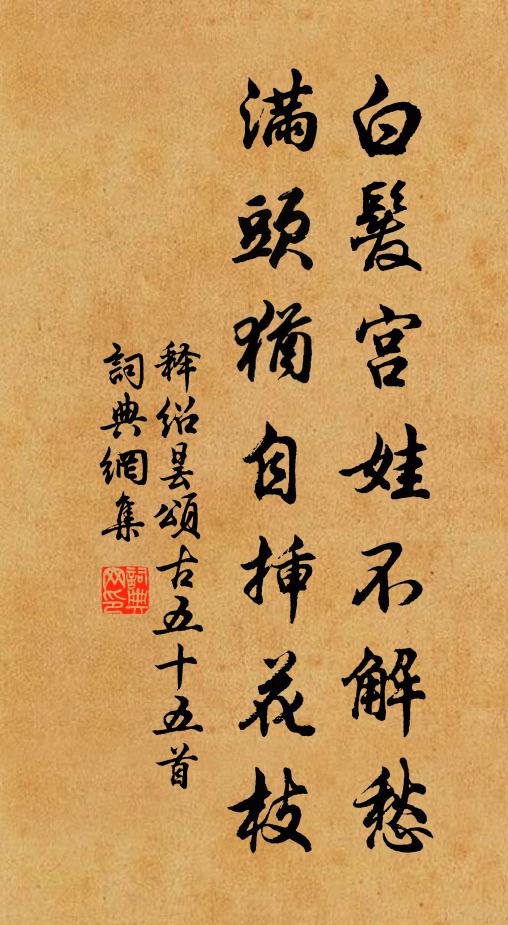 白髮宮娃不解愁
滿頭猶自揷花枝
释紹曇頌古五十五首
詞典網集
詞典网印